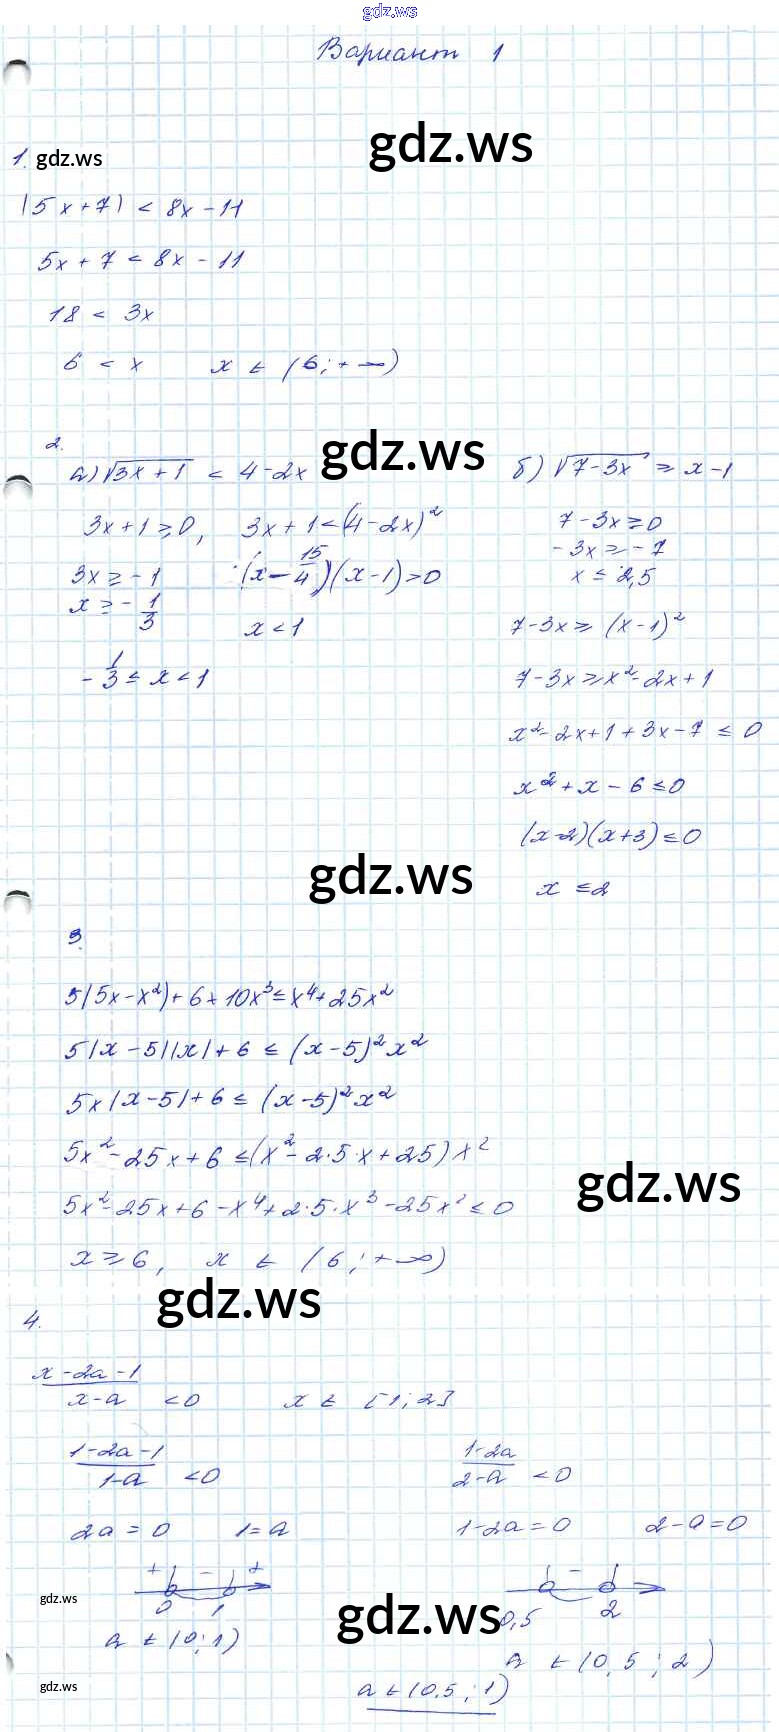 gdz.ws
Вариант 1
gdz.ws
1. gdz.ws
|5x+7| < 8x-11
5x+7 < 8x-11
18 < 3x
6 < x x ∈ (6; +∞)
2. gdz.ws
а) √3x+1 < 4-2x
3x+1 ≥ 0, 3x+1 < (4-2x)²
3x ≥ -1 (x - 15/4)(x-1) > 0
x ≥ -1/3 x < 1
-1/3 ≤ x < 1
б) √7-3x ≥ x-1
7-3x ≥ 0
-3x ≥ -7
x ≤ 2,5
7-3x ≥ (x-1)²
7-3x ≥ x²-2x+1
x²-2x+1+3x-7 ≤ 0
x²+x-6 ≤ 0
(x-2)(x+3) ≤ 0
x ≤ 2
gdz.ws
3.
5|5x-x²|+6+10x³ ≤ x⁴+25x²
5|x-5||x|+6 ≤ (x-5)²x²
5x|x-5|+6 ≤ (x-5)²x²
5x²-25x+6 ≤ (x²-2·5·x+25)x²
gdz.ws
5x²-25x+6-x⁴+2·5·x³-25x² ≤ 0
x ≥ 6, x ∈ (6; +∞)
gdz.ws
4.
x-2a-1/x-a < 0 x ∈ [1; 2]
1-2a-1/1-a < 0
2a = 0 1 = a
+ - +
0 1
a ∈ (0; 1)
1-2a/2-a < 0
1-2a = 0 2-a = 0
-
0,5 2
a ∈ (0,5; 2)
gdz.ws
gdz.ws
gdz.ws
a ∈ (0,5; 1)